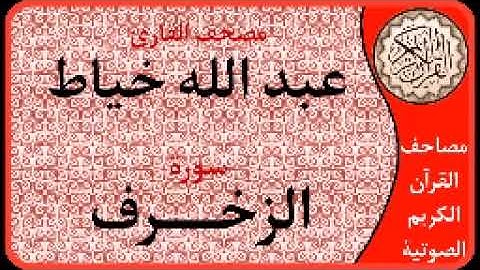 مصحف القارئ
عبد الله خياط
سورة
الزخــرف
القرآن الكريم
مصاحف
القرآن
الكريم
الصوتية